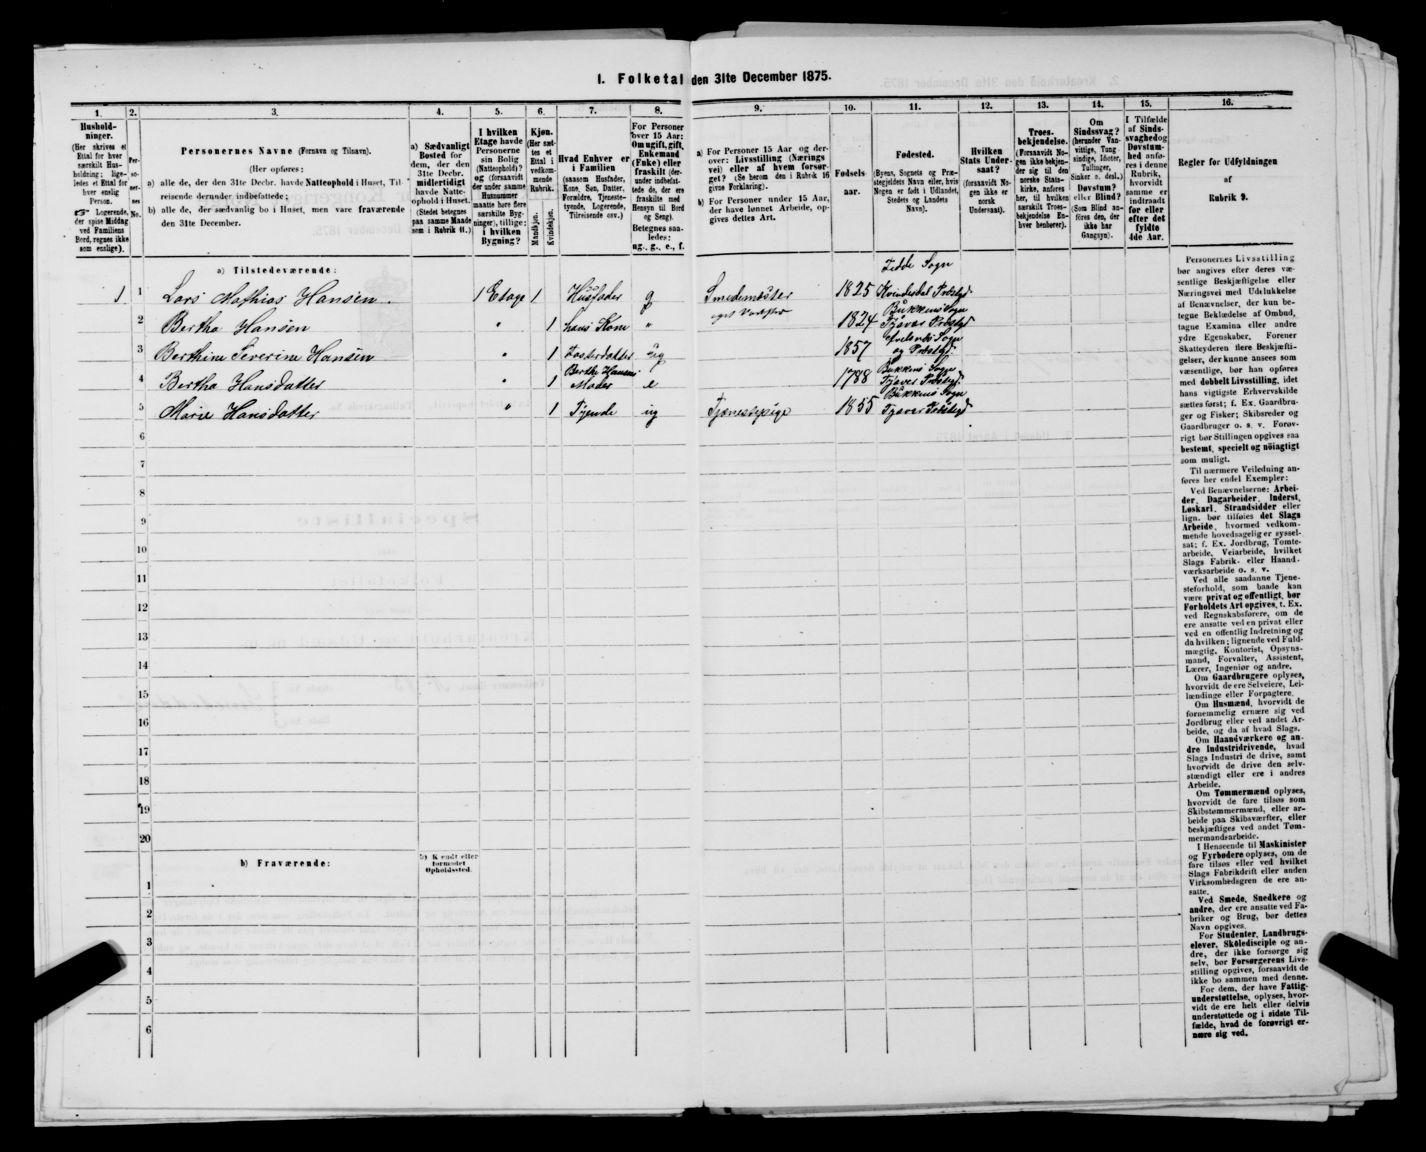 1. Folketal den 31te December 1875.
1.
2.
3.
4.
5.
6.
7.
8.
9.
10.
11.
12.
13.
14.
15.
16.
Hushold-
ninger.
(Her skrives et
Ettal for hver
særskilt Hus-
holdning; lige-
ledes et Ettal for
hver enslig
Person.
☞ Logerende,
der spise Middag
ved Familiens
Bord, regnes ikke
som enslige).
Per-
so-
ner-
nes
No.
Personernes Navne (Fornavn og Tilnavn).
(Her opføres:
a) alle de, der den 31te Decbr. havde Natteophold i Huset, Til-
reisende derunder indbefattede;
b) alle de, der sædvanlig bo i Huset, men vare fraværende
den 31te December.
a) Sædvanligt
Bosted for
dem, der den
31te Decbr.
midlertidigt
havde Natte-
ophold i Huset.
(Stedet betegnes
paa samme Maade
som i Rubrik 11.)
I hvilken
Etage havde
Personerne
sin Bolig
(Natteophold)?
og (forsaavidt
der under samme
Husnummer
maatte høre flere
særskilte Byg-
ninger), tillige:
i hvilken
Bygning?
Kjøn.
(Her sæt-
tes et
Ettal i
vedkom-
mende
Rubrik.
Mandkjøn.
Kvindekjøn.
Hvad Enhver er
i Familien
(saasom Husfader,
Kone, Søn, Datter,
Forældre, Tjeneste-
tyende, Logerende,
Tilreisende osv.)
For Personer
over 15 Aar:
Om ugift, gift,
Enkemand
(Enke) eller
fraskilt (der-
under indbefat-
tede de, der ere
fraskilte med
Hensyn til Bord
og Seng).
Betegnes saa-
ledes:
ug., g., e., f.
a) For Personer 15 Aar og der-
over: Livsstilling (Nærings
vei) eller af hvem forsør-
get? (Se herom den i Rubrik 16
givne Forklaring).
b) For Personer under 15 Aar,
der have lønnet Arbeide, op-
gives dettes Art.
Fødsels-
aar.
Fødested.
(Byens, Sognets og Præ-
stegjeldets Navn eller, hvis
Nogen er født i Udlandet,
Stedets og Landets
Navn).
Hvilken
Stats Under-
saat?
(forsaavidt No-
gen ikke er
norsk
Undersaat).
Troes-
bekjendelse.
(Forsaavidt No-
gen ikke bekjen-
der sig til den
norske Stats-
kirke, anføres
her, til hvilken
særskilt Troes-
bekjendelse En-
hver henhører).
Om
Sindssvag?
(herunder Van-
vittige, Tung-
sindige, Idioter,
Tullinger,
Sinker o. desl.)
Døvstum?
eller Blind?
(Som Blind an-
føres den, der
ikke har
Gangsyn).
I Tilfælde
af Sinds-
svaghed og
Døvstum-
hed anfø-
res i denne
Rubrik,
hvorvidt
samme er
indtraadt
før eller
efter det
fyldte
4de Aar.
Regler for Udfyldningen
af
Rubrik 9.
a) Tilstedeværende:
Fedde Sogn
1
1
Lars Mathias Hansen.
1 Etage
1
Husfader
g
Smedemester
1825
Kvindesdal Præstgd
eget Værksted
2
Bertha Hansen
"
1
hans Kone
"
1824
Bukkens Sogn
Tysvær Præstgd
3
Berthine Severine Hansen
"
1
Fosterdatter
ug
1857
Sogn
og Præstgd.
4
Bertha Hansdatter
"
1
Berthe Hansens
Moder
e
1788
Bukkens Sogn
Tysvær Præstgd.
5
Marie Hansdatter
"
1
Tyende
ug
Tjenestepige
1855
Bukkens Sogn
Tysvær Præstgd
6
7
8
9
10
11
12
13
14
15
16
17
18
19
20
b) Fraværende:
b) Kjendt eller
formodet
Opholdssted.
1
2
3
4
5
6
Personernes Livsstilling
bør angives efter deres væ-
sentlige Beskjæftigelse eller
Næringsvei med Udelukkelse
af Benævnelser, der kun be-
tegne Beklædelse af Ombud,
tagne Examina eller andre
ydre Egenskaber. Forener
Skatteyderen flere Beskjæfti-
gelser, der kunne ansees som
væsentlige, bør han opføres
med dobbelt Livsstilling, idet
hans vigtigste Erhvervskilde
sættes først; f. Ex. Gaardbru-
ger og Fisker; Skibsreder og
Gaardbruger o. s. v. Forøv-
rigt bør Stillingen opgives saa
bestemt, specielt og nøiagtigt
som muligt.
Til nærmere Veiledning an-
føres her endel Exempler:
Ved Benævnelserne: Arbei-
der, Dagarbeider, Inderst,
Løskarl, Strandsidder eller
lign. bør tilføies det Slags
Arbeide, hvormed vedkom-
mende hovedsagelig er syssel-
sat; f. Ex. Jordbrug, Tomte-
arbeide, Veiarbeide, hvilket
Slags Fabrik- eller Haand-
værksarbeide o. s. v.
Ved alle saadanne Tjene-
steforhold, som baade kan
være privat og offentligt, bør
Forholdets Art opgives, t. Ex.
ved Regnskabsførere, om de
ere ansatte ved en privat eller
ved en offentlig Indretning og
da hvilken; lignende ved Fuld-
mægtig, Kontorist, Opsyns-
mand, Forvalter, Assistent,
Lærer, Ingeniør og andre.
Om Gaardbrugere oplyses,
hvorvidt de ere Selveiere, Lei-
lændinge eller Forpagtere.
Om Husmænd, hvorvidt de
fornemmelig ernære sig ved
Jordbrug eller ved andet Ar-
beide, og da af hvad Slags.
Om Haandværkere og an-
dre Industridrivende, hvad
Slags Industri de drive, samt
hvorvidt de drive den selv-
stændigt eller ere i andres
Arbeide.
Om Tømmermænd oplyses,
hvorvidt de fare tilsøs som
Skibstømmermænd, eller ar-
beide paa Skibsværfter, eller
beskjæftiges ved andet Tøm-
mermandsarbeide.
I Henseende til Maskinister
og Fyrbødere oplyses, om de
fare tilsøs eller ved hvilket
Slags Fabrikdrift eller anden
Virksomhedsgren de ere an-
satte.
Ved Smede, Snedkere og
andre, der ere ansatte ved Fa-
briker og Brug, bør dettes
Navn opgives.
For Studenter, Landbrugs-
elever, Skoledisciple og an-
dre, der ikke forsørge sig
selv, bør Forsørgerens Livs-
stilling opgives, forsaavidt de
ikke bo sammen med denne.
For dem, der have Fattig-
understøttelse, oplyses, hvor-
vidt de ere helt eller delvis
understøttede og i sidste Til-
fælde, hvad de forøvrigt er-
nære sig ved.